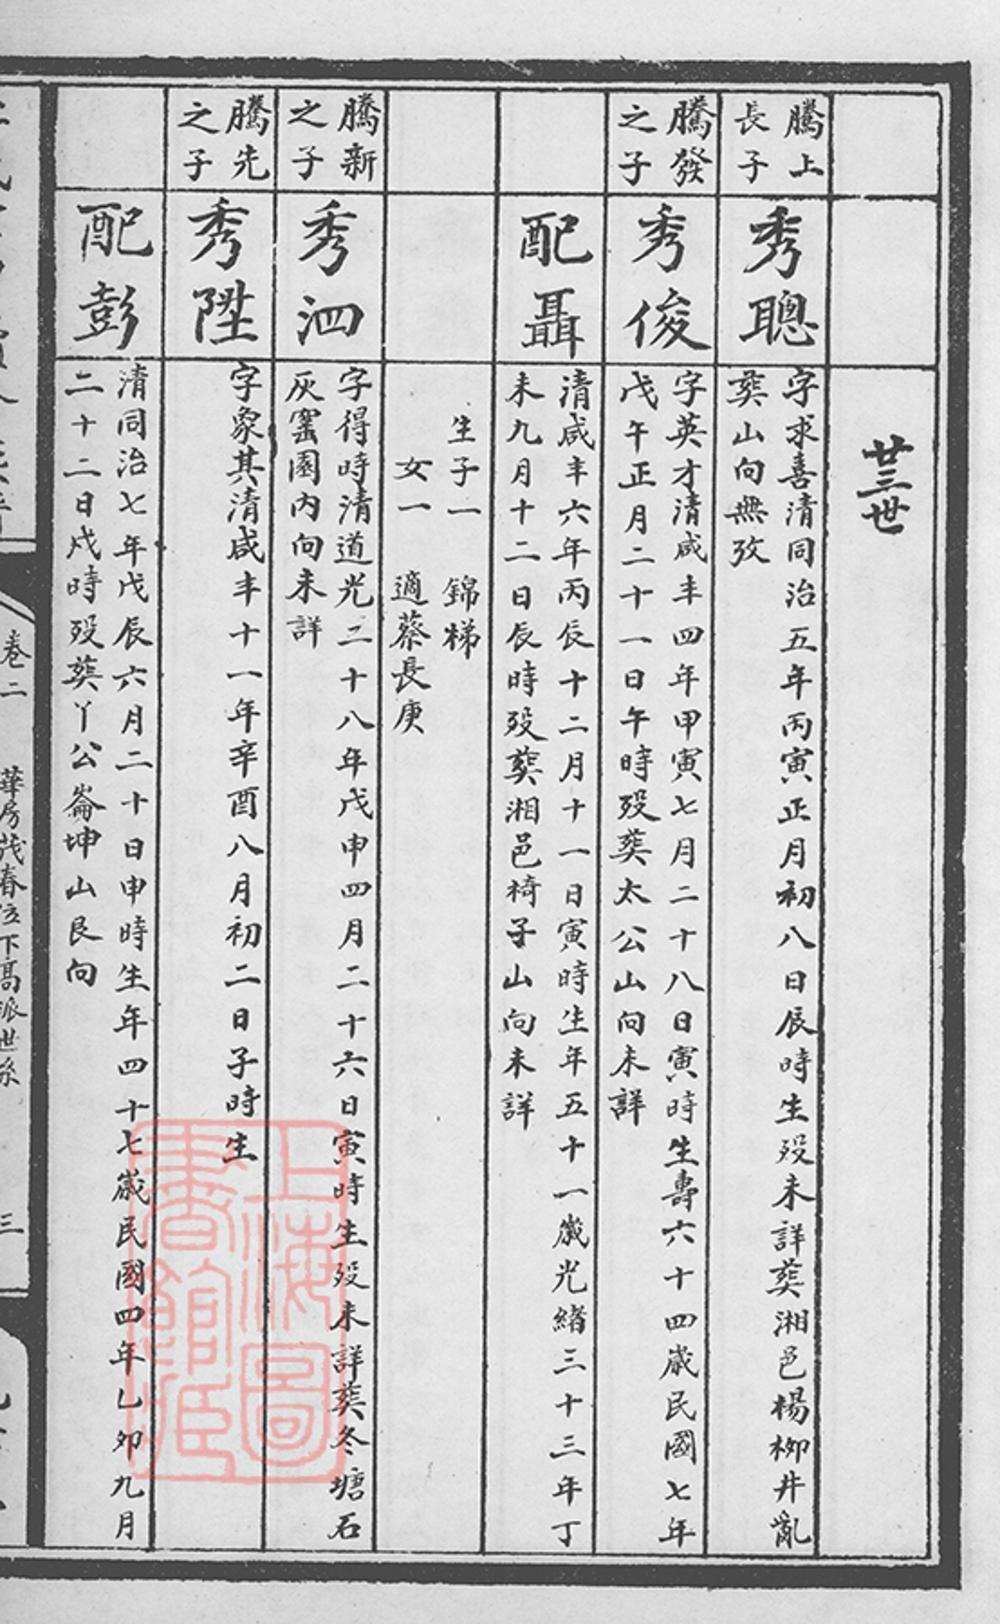 廿三世
騰上
長子
秀聰
字求喜清同治五年丙寅正月初八日辰時生歿未詳葬湘邑楊柳井亂
葬山向無攷
騰發
之子
秀俊
字英才清咸丰四年甲寅七月二十八日寅時生壽六十四歲民國七年
戊午正月二十一日午時歿葬太公山向未詳
配聶
清咸丰六年丙辰十二月十一日寅時生年五十一歲光緒三十三年丁
未九月十二日辰時歿葬湘邑椅子山向未詳
生子一 錦梯
女一 適蔡長庚
騰新
之子
秀泗
字得時清道光二十八年戊申四月二十六日寅時生歿未詳葬冬塘石
灰窰園内向未詳
騰先
之子
秀陞
字象其清咸丰十一年辛酉八月初二日子時生
配彭
清同治七年戊辰六月二十日申時生年四十七歲民國四年乙卯九月
二十二日戌時歿葬丫公崙坤山艮向
卷二
華房茂春位下髙派世系
三
上海圖
書館藏